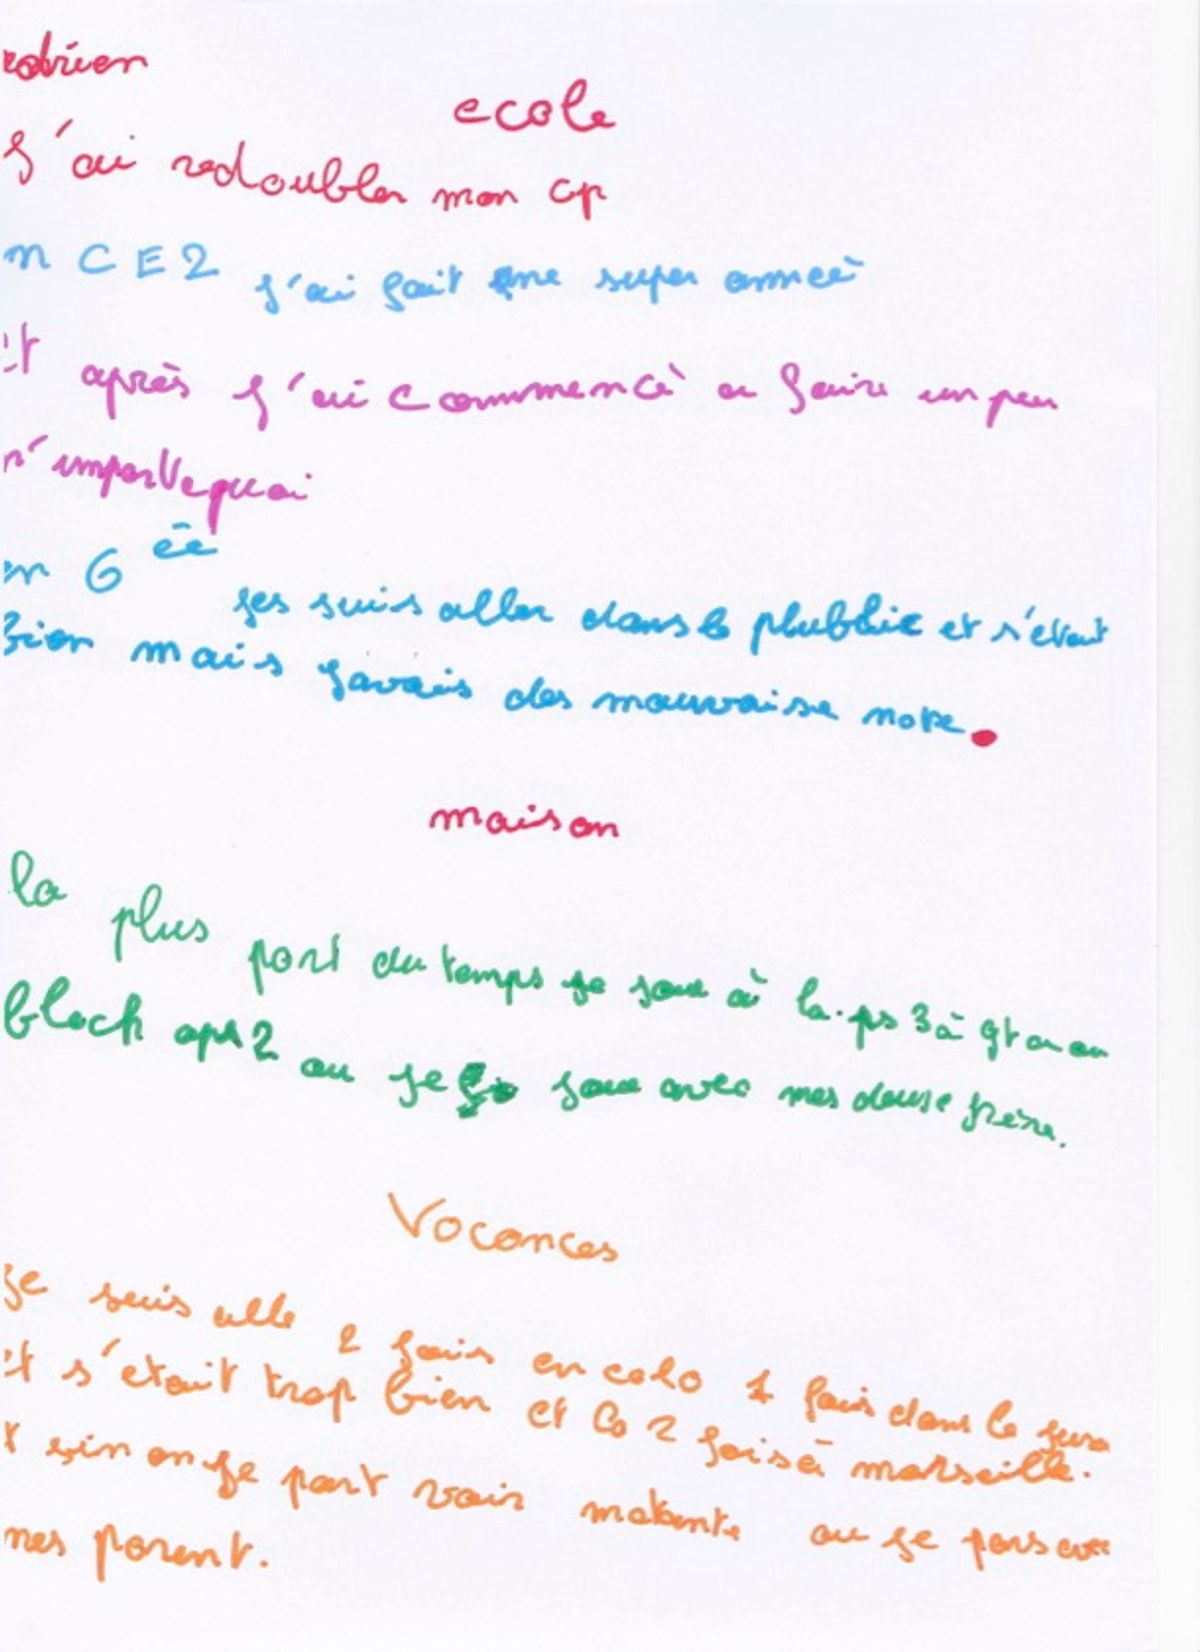 adrien
ecole
j'ai redoubler mon cp
en CE2 j'ai fait une super anneè
et après j'ai commencè a faire un peu
n'importe quoi
en 6 èe jes suis aller dans le plubblic et s'était
bien mais javais des mauvaise note.
maison
la plus part du temps je joue à la ps3 à gta ou
black ops 2 ou je joue avec mes deuse frère.
Vacances
je suis alle 2 fois en colo 1 fois dans le jura
et s'etait trop bien et la 2 fois à marseille.
et sinon je part voir matante ou je pars avec
mes parent.